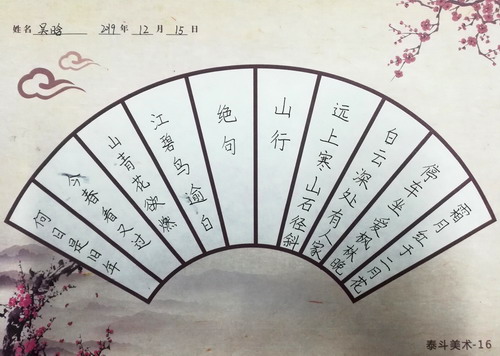 姓名 吴 2019 年 12 月 15 日
绝句
江碧鸟逾白
山青花欲燃
今春看又过
何日是旧年
山行
远上寒山石径斜
白云深处有人家
停车坐爱枫林晚
霜月红于二月花
泰斗美术-16